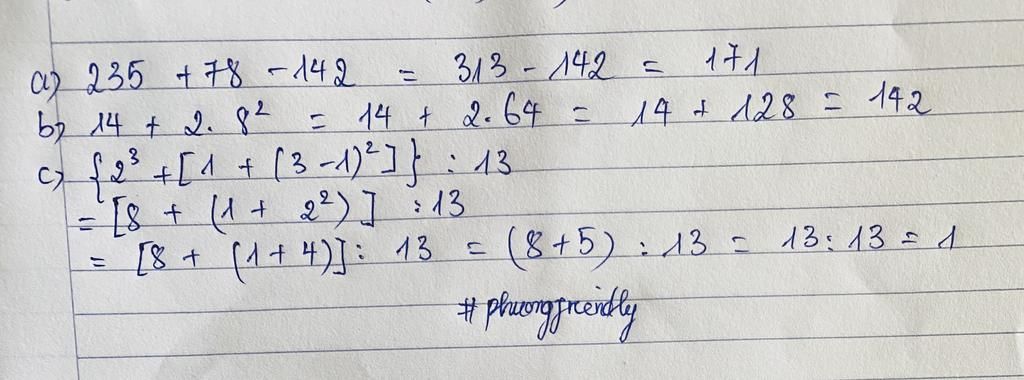 a) 235 + 78 - 142 = 313 - 142 = 171
b) 14 + 2. 8² = 14 + 2.64 = 14 + 128 = 142
c) {2³ + [1 + (3 - 1)²]} : 13
= [8 + (1 + 2²)] : 13
= [8 + (1 + 4)] : 13 = (8 + 5) : 13 = 13 : 13 = 1
# phuongfriendly